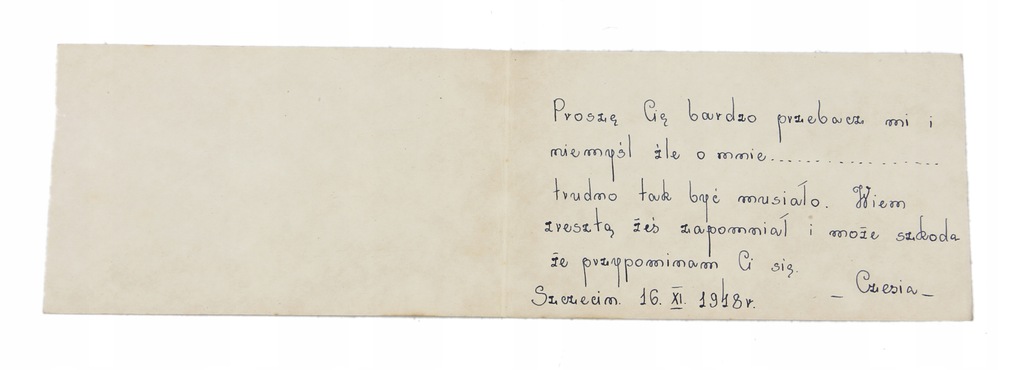 Proszę Cię bardzo przebacz mi i
niemyśl źle o mnie..................
trudno tak być musiało. Wiem
zresztą żeś zapomniał i może szkoda
że przypominam Ci się.
Szczecin. 16. XI. 1948r. – Czesia –